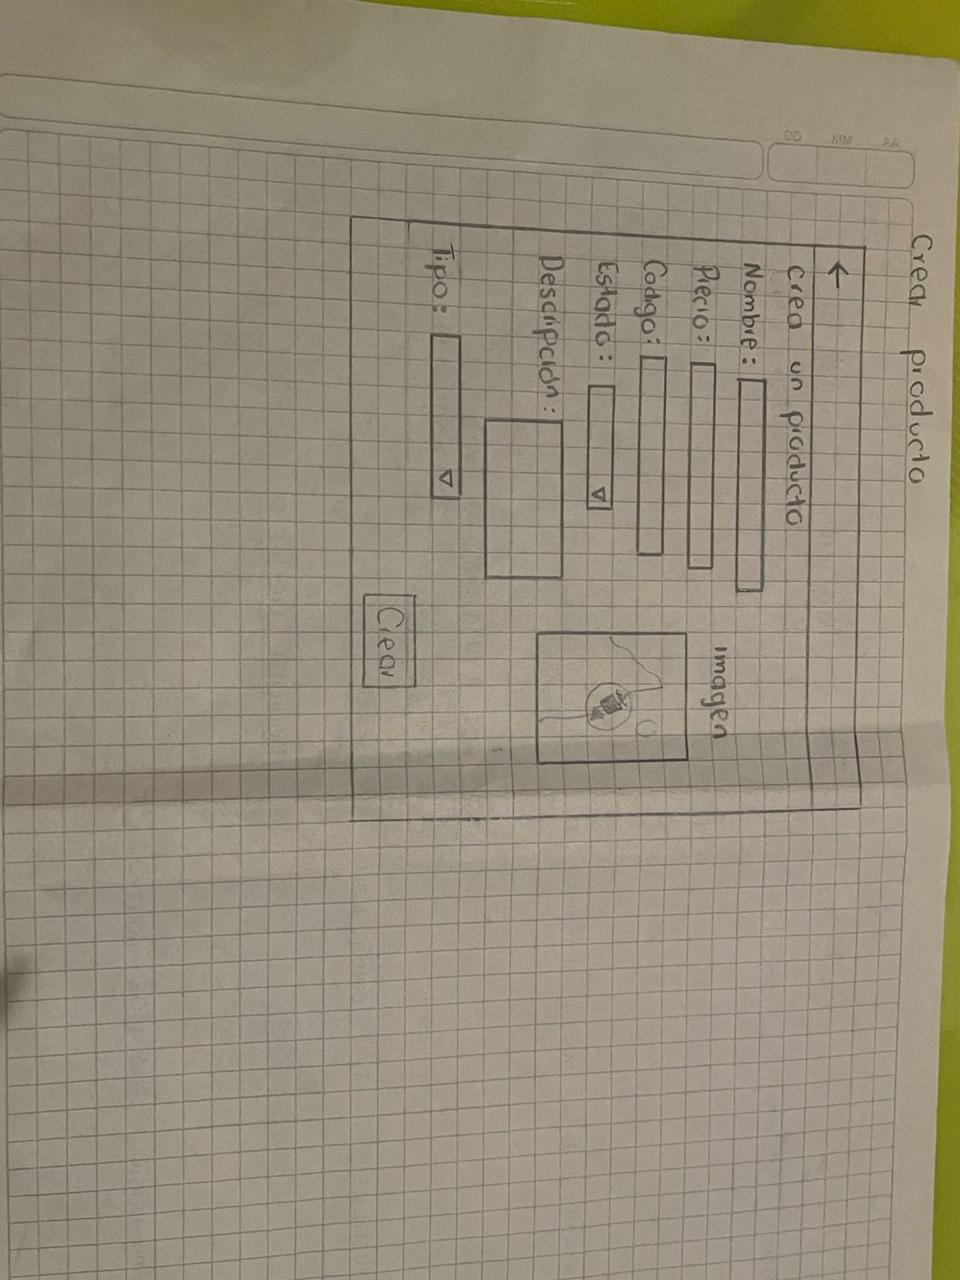 DD MM AA
Crear producto
←
Crea un producto
Nombre:
Precio:
Codigo:
Estado:
Descripción:
Tipo:
imagen
Crear